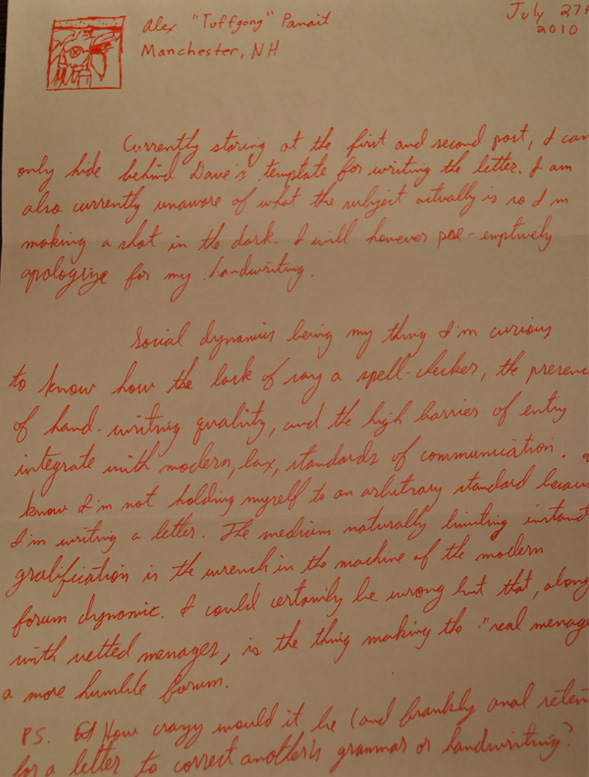 Alex "Tuffgong" Panait
July 27
2010
Manchester, NH
Currently staring at the first and second post, I can
only hide behind Dave's template for writing the letter. I am
also currently unaware of what the subject actually is so I'm
making a shot in the dark. I will however pee-emptively
apologize for my handwriting.
Social dynamics being my thing I'm curious
to know how the lack of say a spell-checker, the presenc
of hand-writing quality, and the high barrier of entry
integrate with modern, lax, standards of communication. I
know I'm not holding myself to an arbitrary standard becau
I'm writing a letter. The medium naturally limiting instant
gratification is the wrench in the machine of the modern
forum dynamic. I could certainly be wrong but that, along
with vetted messages, is the thing making the "real message
a more humble forum.
PS. How crazy would it be (and frankly anal reten
for a letter to correct another's grammar or handwriting?